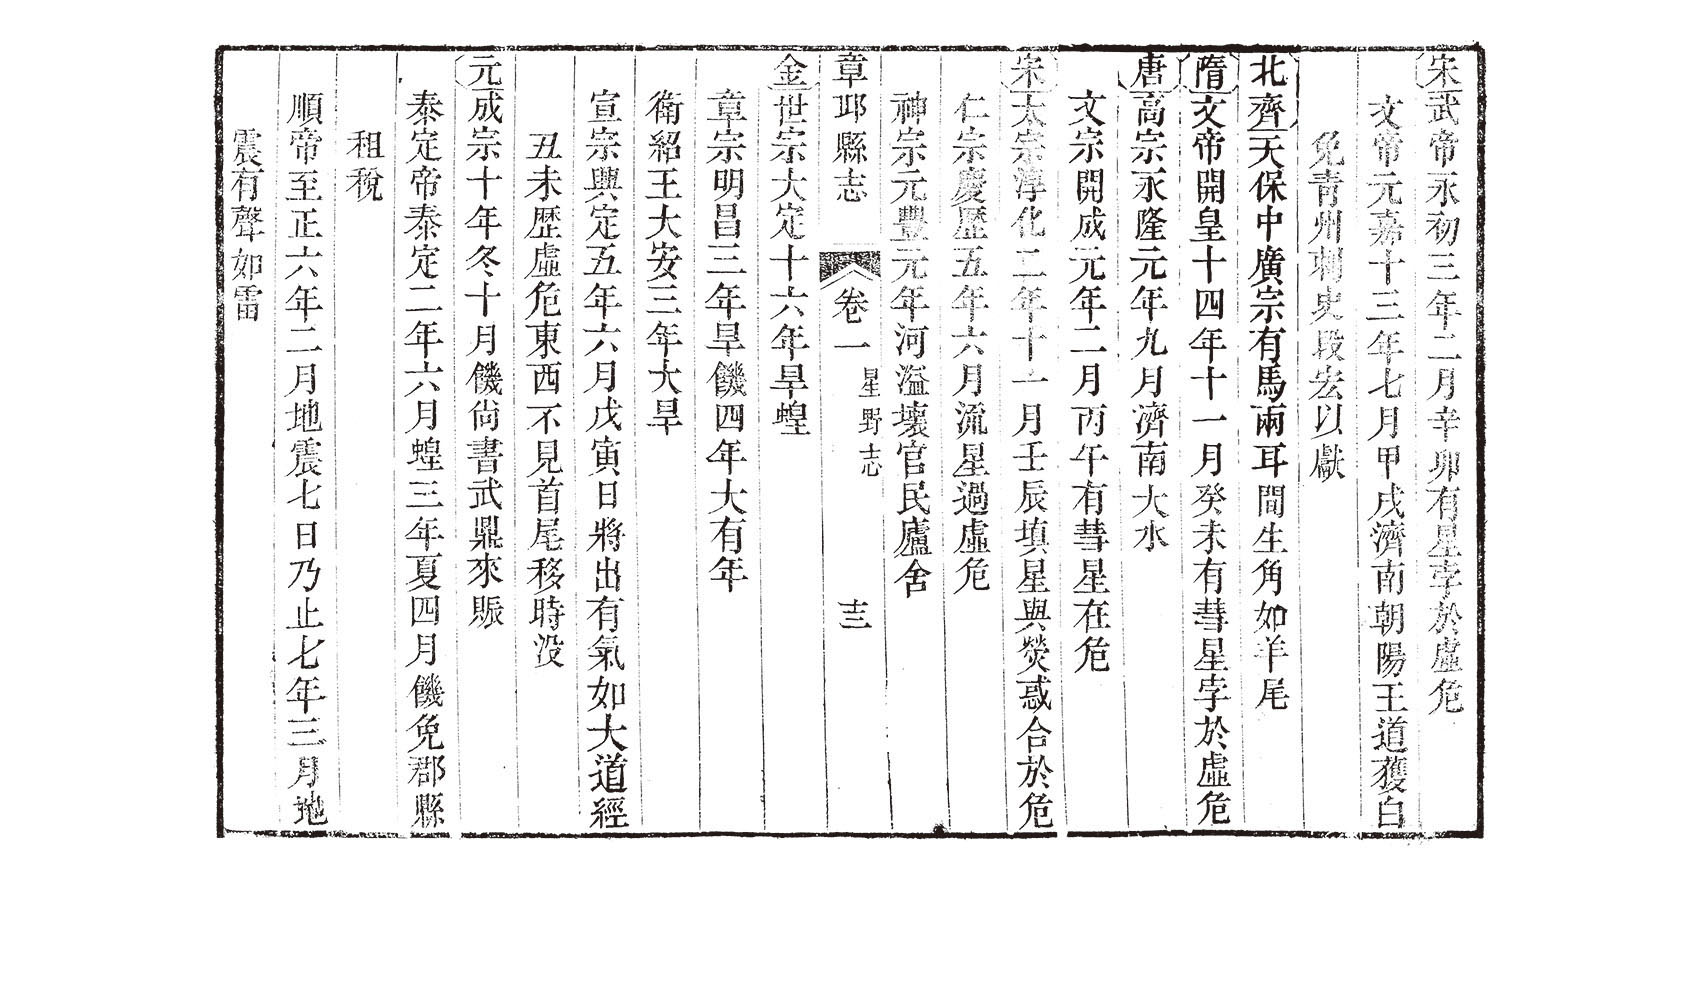 宋武帝永初三年二月辛卯有星孛於虛危
文帝元嘉十三年七月甲戌濟南朝陽王道獲白
兔青州刺史段宏以獻
北齊天保中廣宗有馬兩耳間生角如羊尾
隋文帝開皇十四年十一月癸未有彗星孛於虛危
唐高宗永隆元年九月濟南大水
文宗開成元年二月丙午有彗星在危
宋太宗淳化二年十一月壬辰填星與熒惑合於危
仁宗慶歷五年六月流星過虛危
神宗元豐元年河溢壞官民廬舍
章邱縣志 卷一 星野志 十三
金世宗大定十六年旱蝗
章宗明昌三年旱饑四年大有年
衛紹王大安三年大旱
宣宗興定五年六月戊寅日將出有氣如大道經
丑未歷虛危東西不見首尾移時沒
元成宗十年冬十月饑尚書武鼎來賑
泰定帝泰定二年六月蝗三年夏四月饑免郡縣
租稅
順帝至正六年二月地震七日乃止七年三月地
震有聲如雷